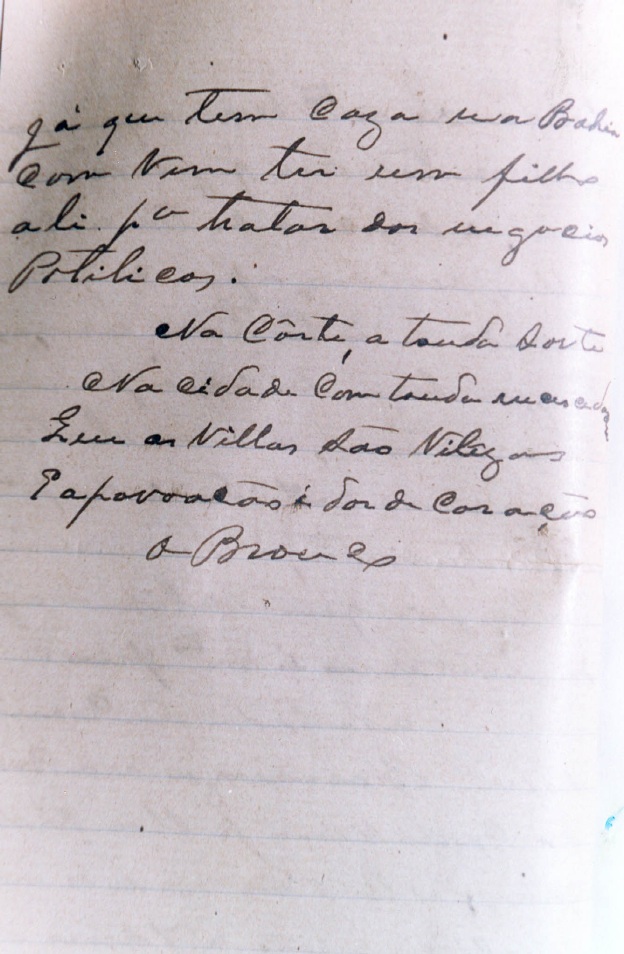 já que tem caza na Bahia
com vem ter um filho
ali pª tratar dos negocios
Politicos.
Na Côrte, a tenda
Na cidade com tenda
as Villas são Vilezas
E a povoação é dor de coração
a